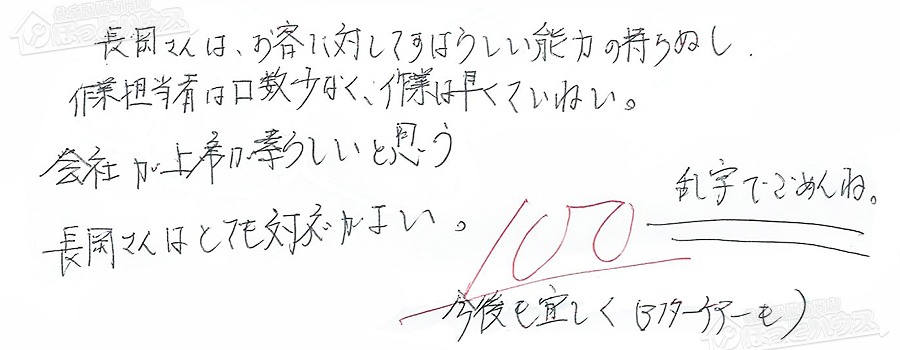 長岡さんは、お客に対してすばらしい能力の持ちぬし.
作業担当者は口数少なく、作業は早くていねい。
会社が上席が素らしいと思う
長岡さんはとても対応がよい。
100
乱字でごめんね。
今後も宜しく(アフターケアーも)